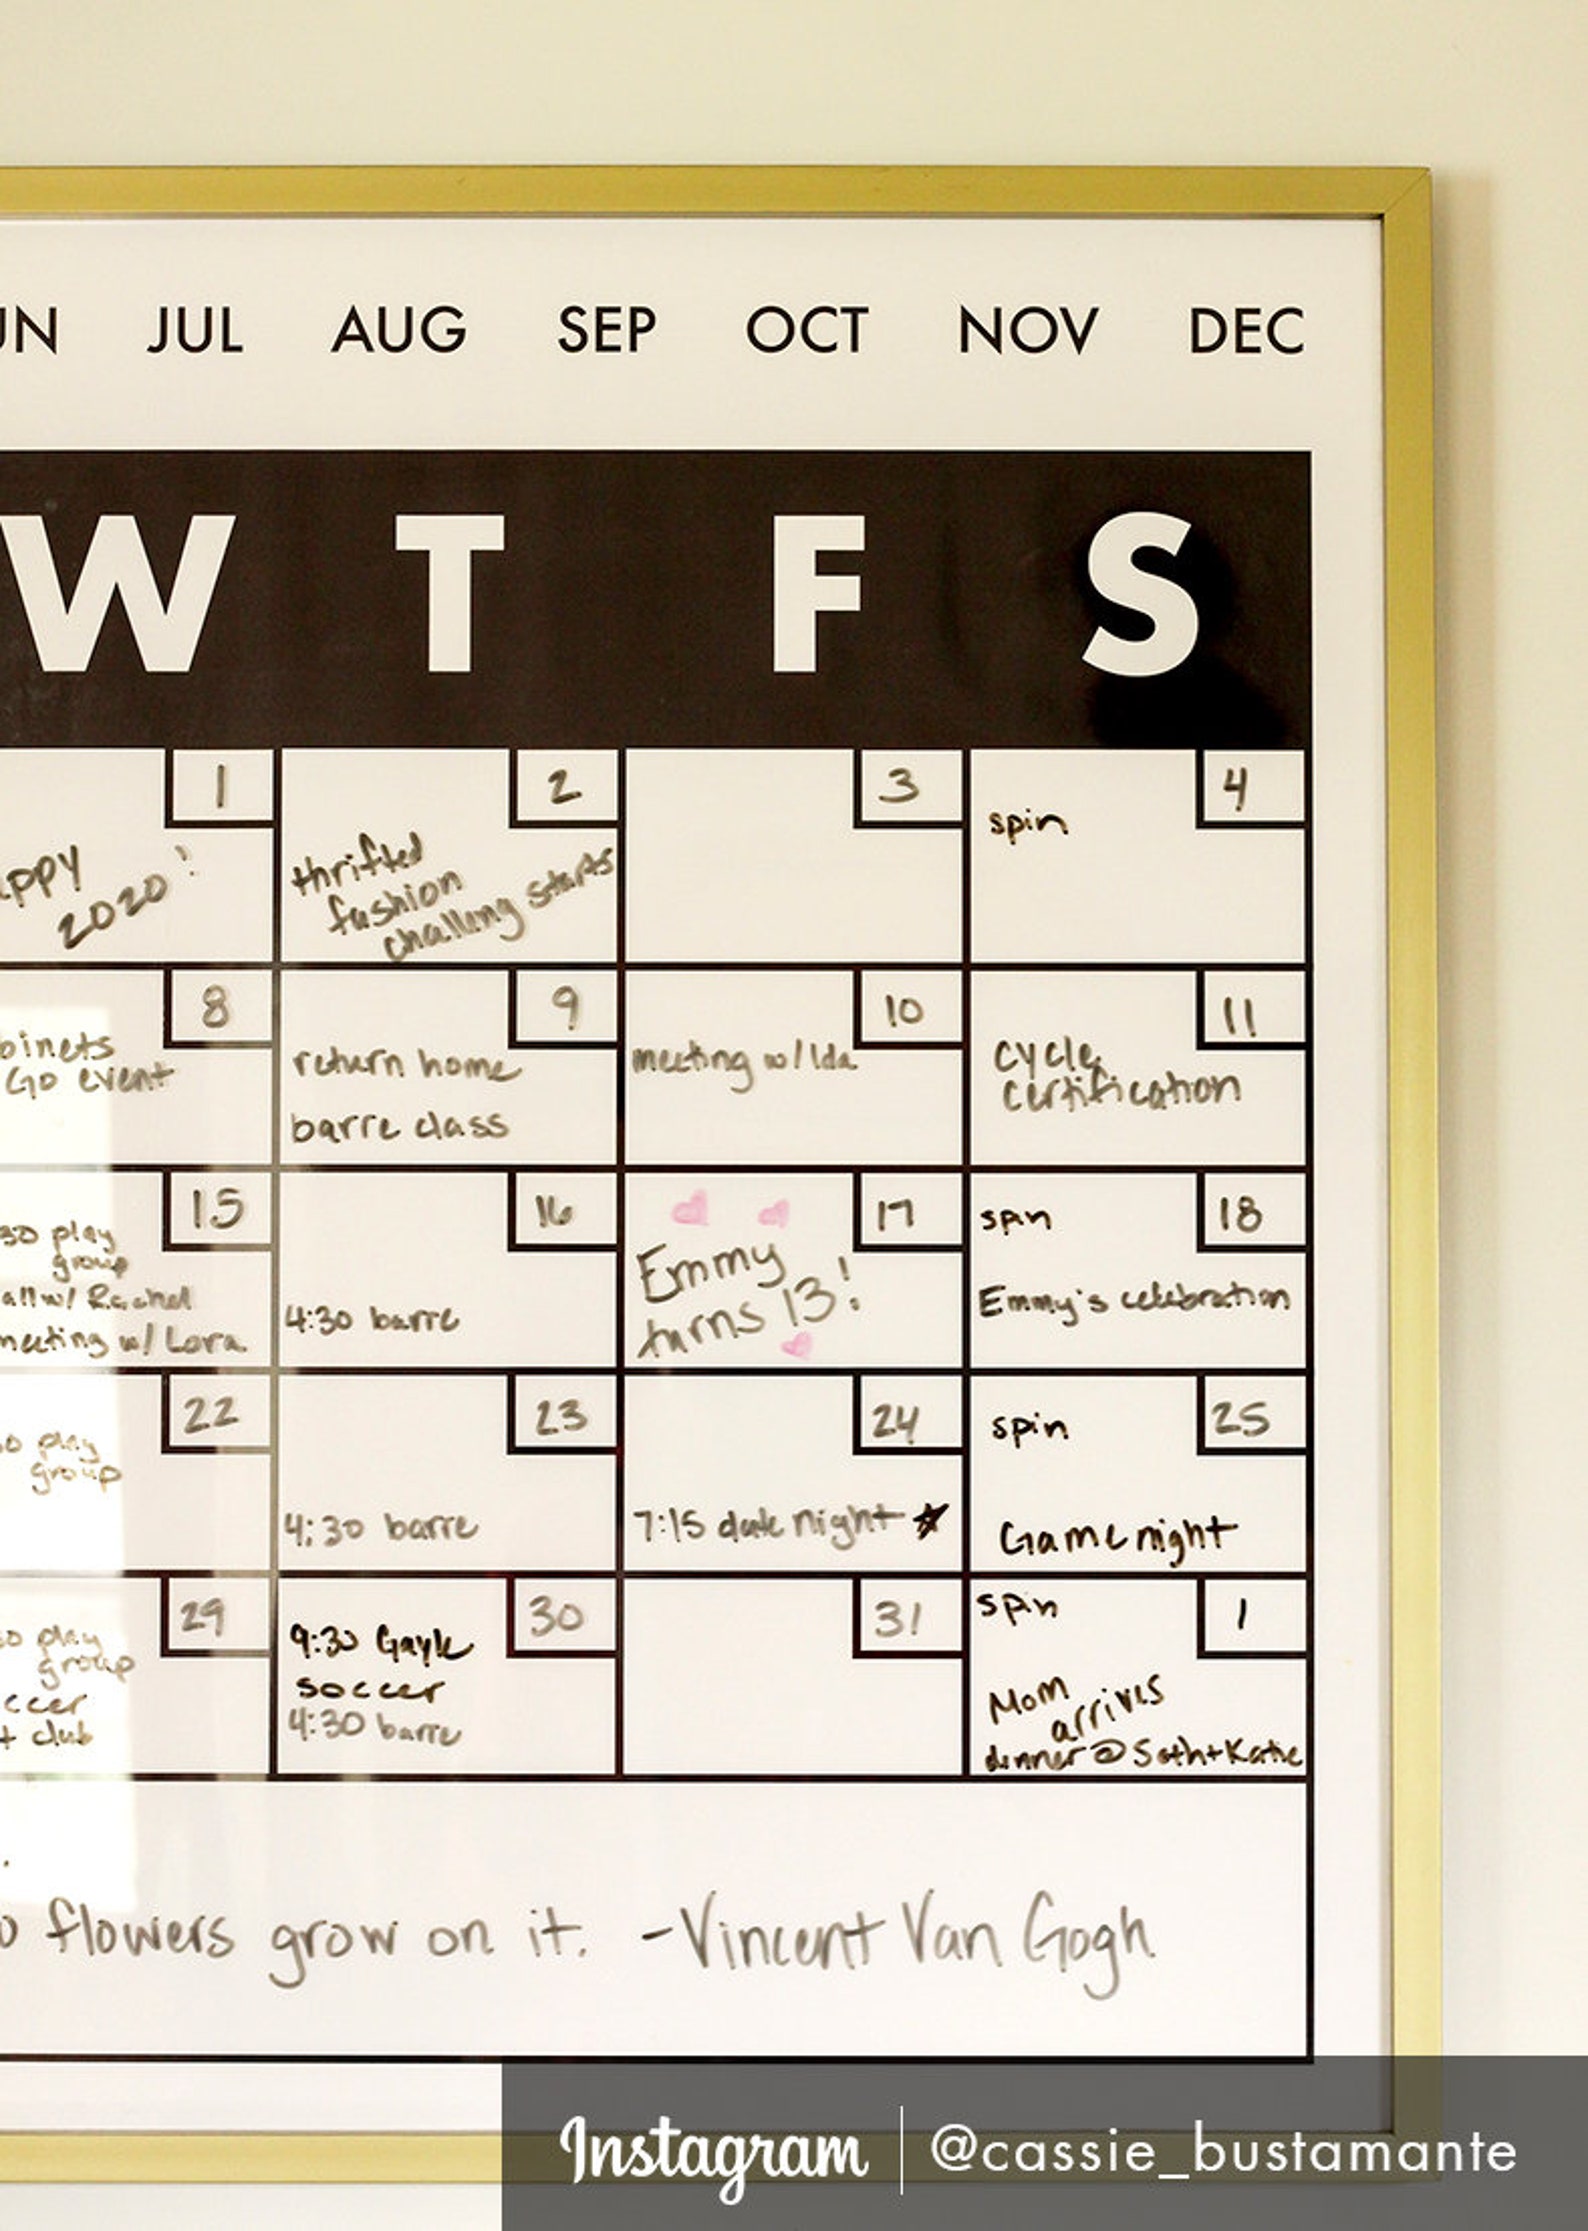 UN JUL AUG SEP OCT NOV DEC
W T F S
1
appy
2020!
2
thrifted
fashion
challeng starts
3
4
spin
8
binets
Go event
9
return home
barre class
10
meeting w/ Ida
11
cycle
certification
15
30 play
group
all w/ Rachel
meeting w/ Lora
16
4:30 barre
17
Emmy
turns 13!
18
spin
Emmy's celebration
22
0 play
group
23
4:30 barre
24
7:15 date night
25
spin
Game night
29
0 play
group
ccer
t club
30
9:30 Gayle
soccer
4:30 barre
31
1
spin
Mom
arrives
dinner @ Seth + Katie
o flowers grow on it. - Vincent Van Gogh
Instagram | @cassie_bustamante